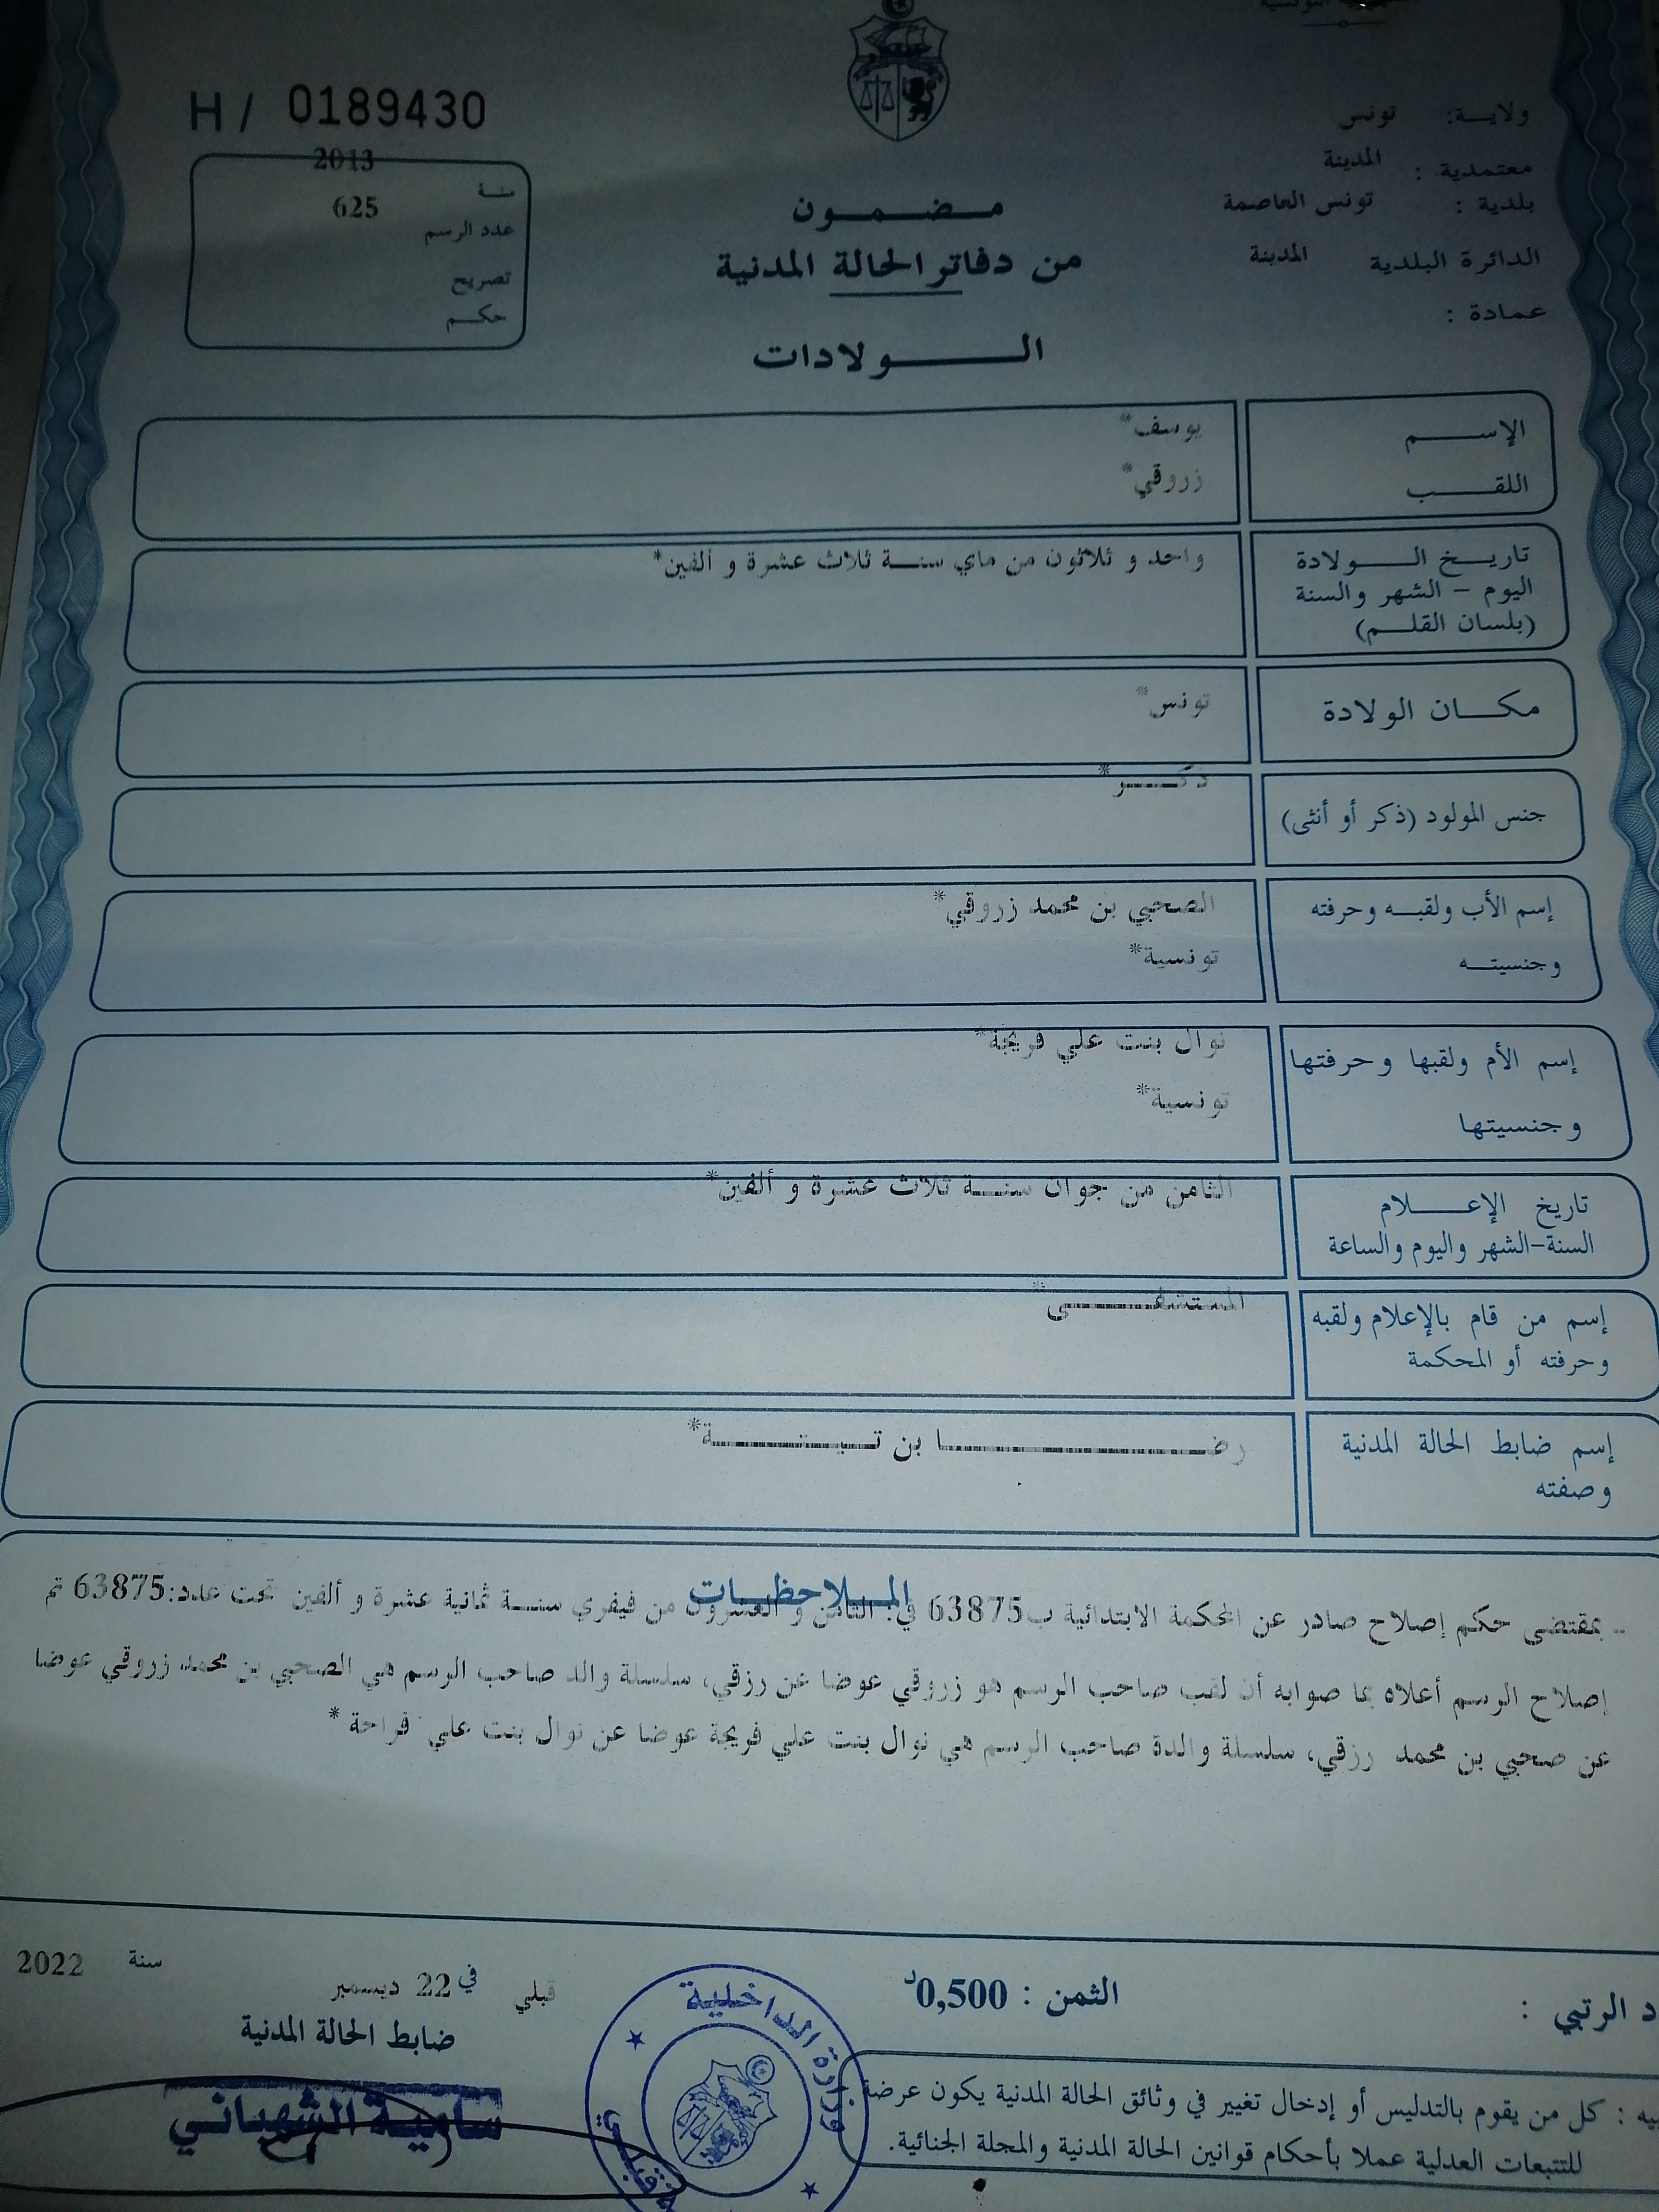 H / 0189430
ولايـــة: تونس
معتمدية : المدينة
بلدية : تونس العاصمة
الدائرة البلدية المدينة
عمادة :
2013
سنـة
625
عدد الرسم
تصريح
حكـــم
مـــضـــمـــون
من دفاتر الحالة المدنية
الـــــولادات
الإســـــم يوسف*
اللقـــــب زروقي*
تاريـــخ الـــــولادة واحد و ثلاثون من ماي سنـــة ثلاث عشرة و ألفين*
اليوم – الشهر والسنة
(بلسان القلـــم)
مكـــان الولادة تونس*
جنس المولود (ذكر أو أنثى) ذكـــــر*
إسم الأب ولقبـــه وحرفته الصحبي بن محمد زروقي*
وجنسيتـــه تونسية*
إسم الأم ولقبها وحرفتها نوال بنت علي فريجة*
وجنسيتها تونسية*
تاريخ الإعـــــلام الثامن من جوان سنـــة ثلاث عشرة و ألفين*
السنة-الشهر واليوم والساعة
إسم من قام بالإعلام ولقبه المستشفـــــى*
وحرفته أو المحكمة
إسم ضابط الحالة المدنية رضـــــــا بن تـــيـــنـــــة*
وصفته
المـــلاحظـــات
- بمقتضى حكم إصلاح صادر عن المحكمة الابتدائية ب63875 في: الثامن و العشرون من فيفري سنـــة ثمانية عشرة و ألفين تحت عدد:63875 تم
إصلاح الرسم أعلاه بما صوابه أن لقب صاحب الرسم هو زروقي عوضا عن رزقي، سلسلة والد صاحب الرسم هي الصحبي بن محمد زروقي عوضا
عن صحبي بن محمد رزقي، سلسلة والدة صاحب الرسم هي نوال بنت علي فريجة عوضا عن نوال بنت علي فراحة *
د الرتبي :
الثمن : 0,500د
قبلي في 22 ديسمبر سنة 2022
ضابط الحالة المدنية
سامية الشهباني
وزارة الداخلية
قبلي
يه : كل من يقوم بالتدليس أو إدخال تغيير في وثائق الحالة المدنية يكون عرضة
للتتبعات العدلية عملا بأحكام قوانين الحالة المدنية والمجلة الجنائية.